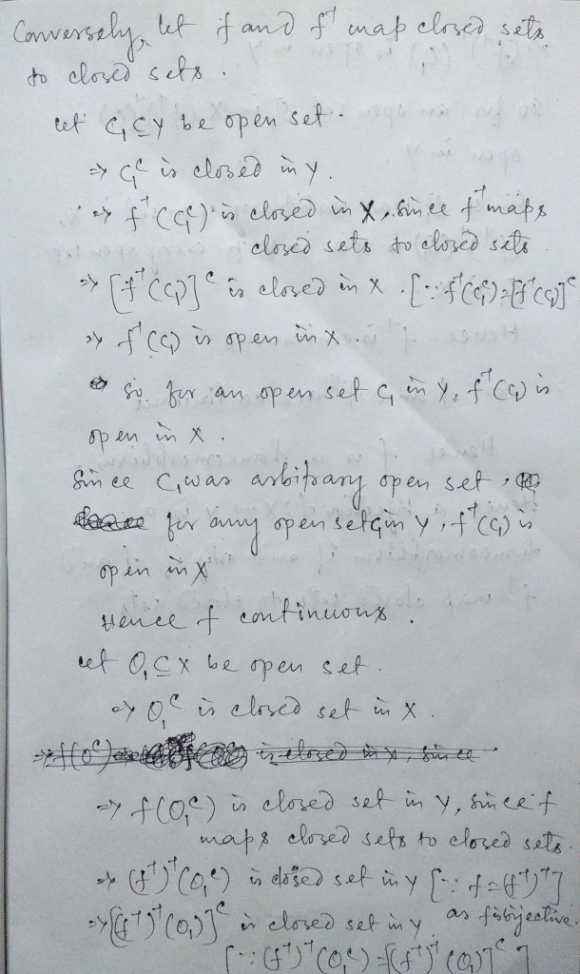 Conversely, let f and f⁻¹ map closed sets
to closed sets.
let C₁ ⊆ Y be open set.
⇒ C₁ᶜ is closed in Y.
⇒ f⁻¹(C₁ᶜ) is closed in X, since f⁻¹ maps
closed sets to closed sets
⇒ [f⁻¹(C₁)]ᶜ is closed in X. [∵ f⁻¹(C₁ᶜ)=[f⁻¹(C₁)]ᶜ
⇒ f⁻¹(C₁) is open in X.
so for an open set C₁ in Y, f⁻¹(C₁) is
open in X.
Since C₁ was arbitrary open set,
for any open set C₁ in Y, f⁻¹(C₁) is
open in X
Hence f continuous.
let O₁ ⊆ X be open set.
⇒ O₁ᶜ is closed set in X.
⇒ f(Oᶜ) is closed in X, since
⇒ f(O₁ᶜ) is closed set in Y, since f
maps closed sets to closed sets.
⇒ (f⁻¹)⁻¹(O₁ᶜ) is closed set in Y [∵ f=(f⁻¹)⁻¹]
⇒ [(f⁻¹)⁻¹(O₁)]ᶜ is closed set in Y as f is bijective.
[∵ (f⁻¹)⁻¹(O₁ᶜ)=[(f⁻¹)⁻¹(O₁)]ᶜ]